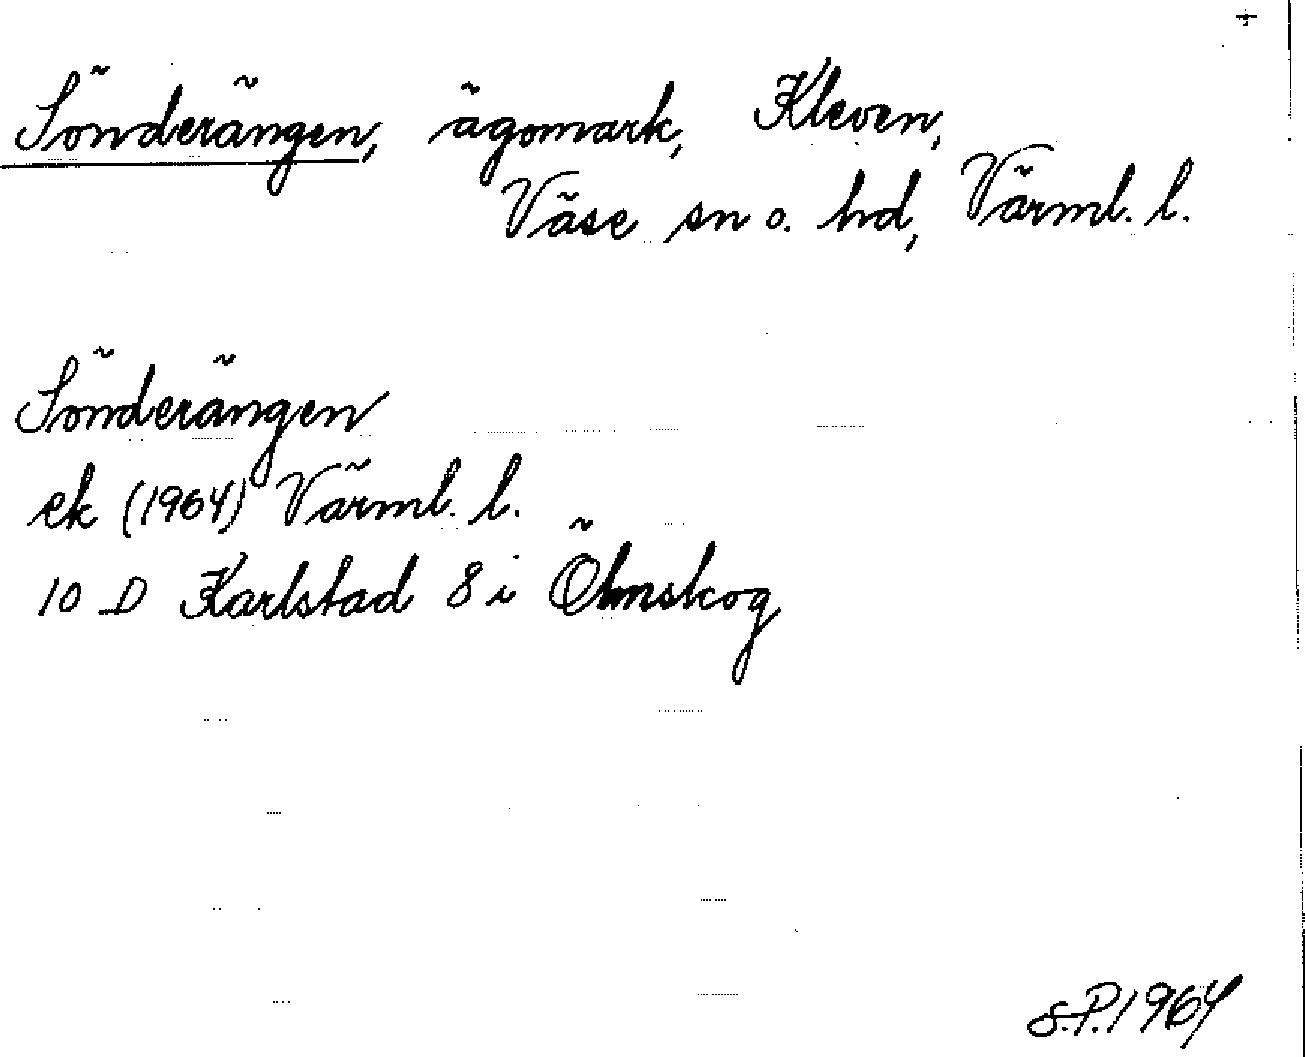 Sönderängen, ägomark, Kleven,
Väse sn o. hd, Värml. l.
Sönderängen
ek (1964) Värml. l.
10 D Karlstad 8 i Ölmskog
S.P. 1964